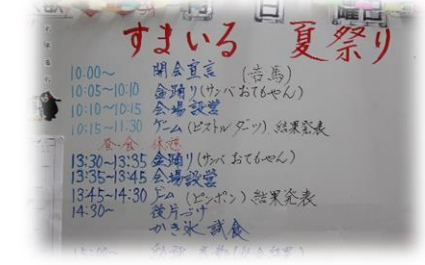 すまいる 夏祭り
10:00～ 開会宣言
10:05～10:10 金踊り(サンバおてもやん)
10:10～10:15 会場設営
10:15～11:30 ゲーム(ピストルダーツ)結果発表
昼・会 休憩
13:30～13:35 金踊り(サンバおてもやん)
13:35～13:45 会場設営
13:45～14:30 ゲーム(ピンポン)結果発表
14:30～ 後片づけ
かき氷 試食